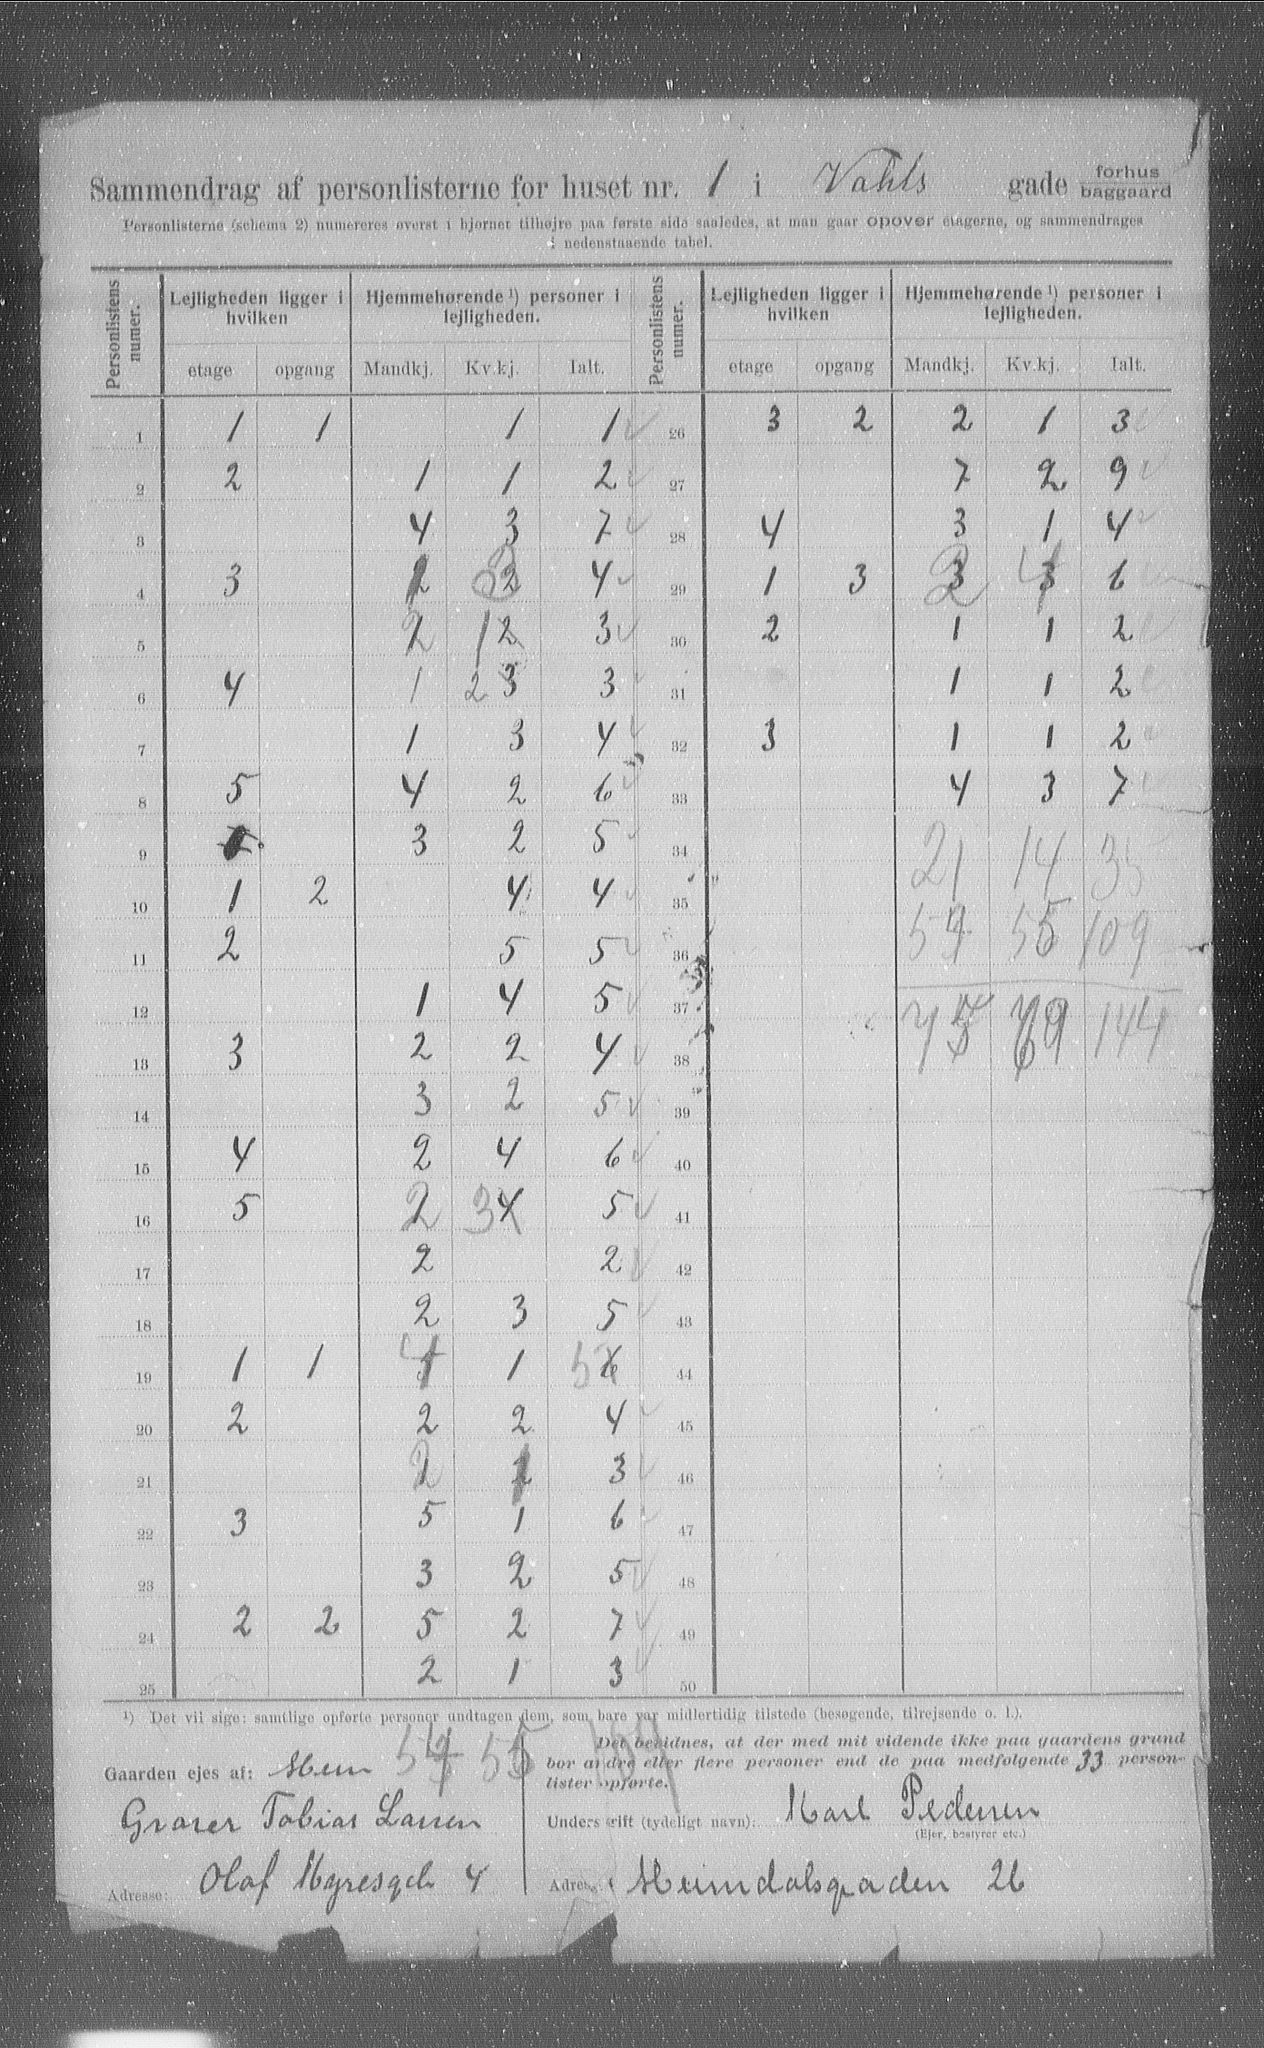 Sammendrag af personlisterne for huset nr. 1 i Vahls gade forhus baggaard
Personlisterne (schema 2) numereres øverst i hjørnet tilhøjre paa første side saaledes, at man gaar opover etagerne, og sammendrages
i nedenstaaende tabel.
Personlistens numer. Lejligheden ligger i hvilken Hjemmehørende ¹) personer i lejligheden. Personlistens numer. Lejligheden ligger i hvilken Hjemmehørende ¹) personer i lejligheden.
etage opgang Mandkj. Kv.kj. Ialt. etage opgang Mandkj. Kv.kj. Ialt.
1 1 1 1 1 26 3 2 2 1 3
2 2 1 1 2 27 7 2 9
3 4 3 7 28 4 3 1 4
4 3 4 29 1 3 6
5 2 3 30 2 1 1 2
6 4 1 2 3 3 31 1 1 2
7 1 3 4 32 3 1 1 2
8 5 4 2 6 33 4 3 7
9 3 2 5 34 21 14 35
10 1 2 4 4 35
11 2 5 5 36 109
12 1 4 5 37 144
13 3 2 2 4 38
14 3 2 5 39
15 4 2 4 6 40
16 5 2 3 4 5 41
17 2 2 42
18 2 3 5 43
19 1 1 4 1 5 44
20 2 2 2 4 45
21 2 3 46
22 3 5 1 6 47
23 3 2 5 48
24 2 2 5 2 7 49
25 2 1 3 50
¹) Det vil sige: samtlige opførte personer undtagen dem, som bare var midlertidig tilstede (besøgende, tilrejsende o. l.).
Gaarden ejes af:
Graver Tobias Larsen
Adresse: Olaf Ryesgd. 4
Det bevidnes, at der med mit vidende ikke paa gaardens grund
bor andre eller flere personer end de paa medfølgende 33 person-
lister opførte.
Underskrift (tydeligt navn): Karl Pedersen
(Ejer, bestyrer etc.)
Adresse: Heimdalsgaden 26